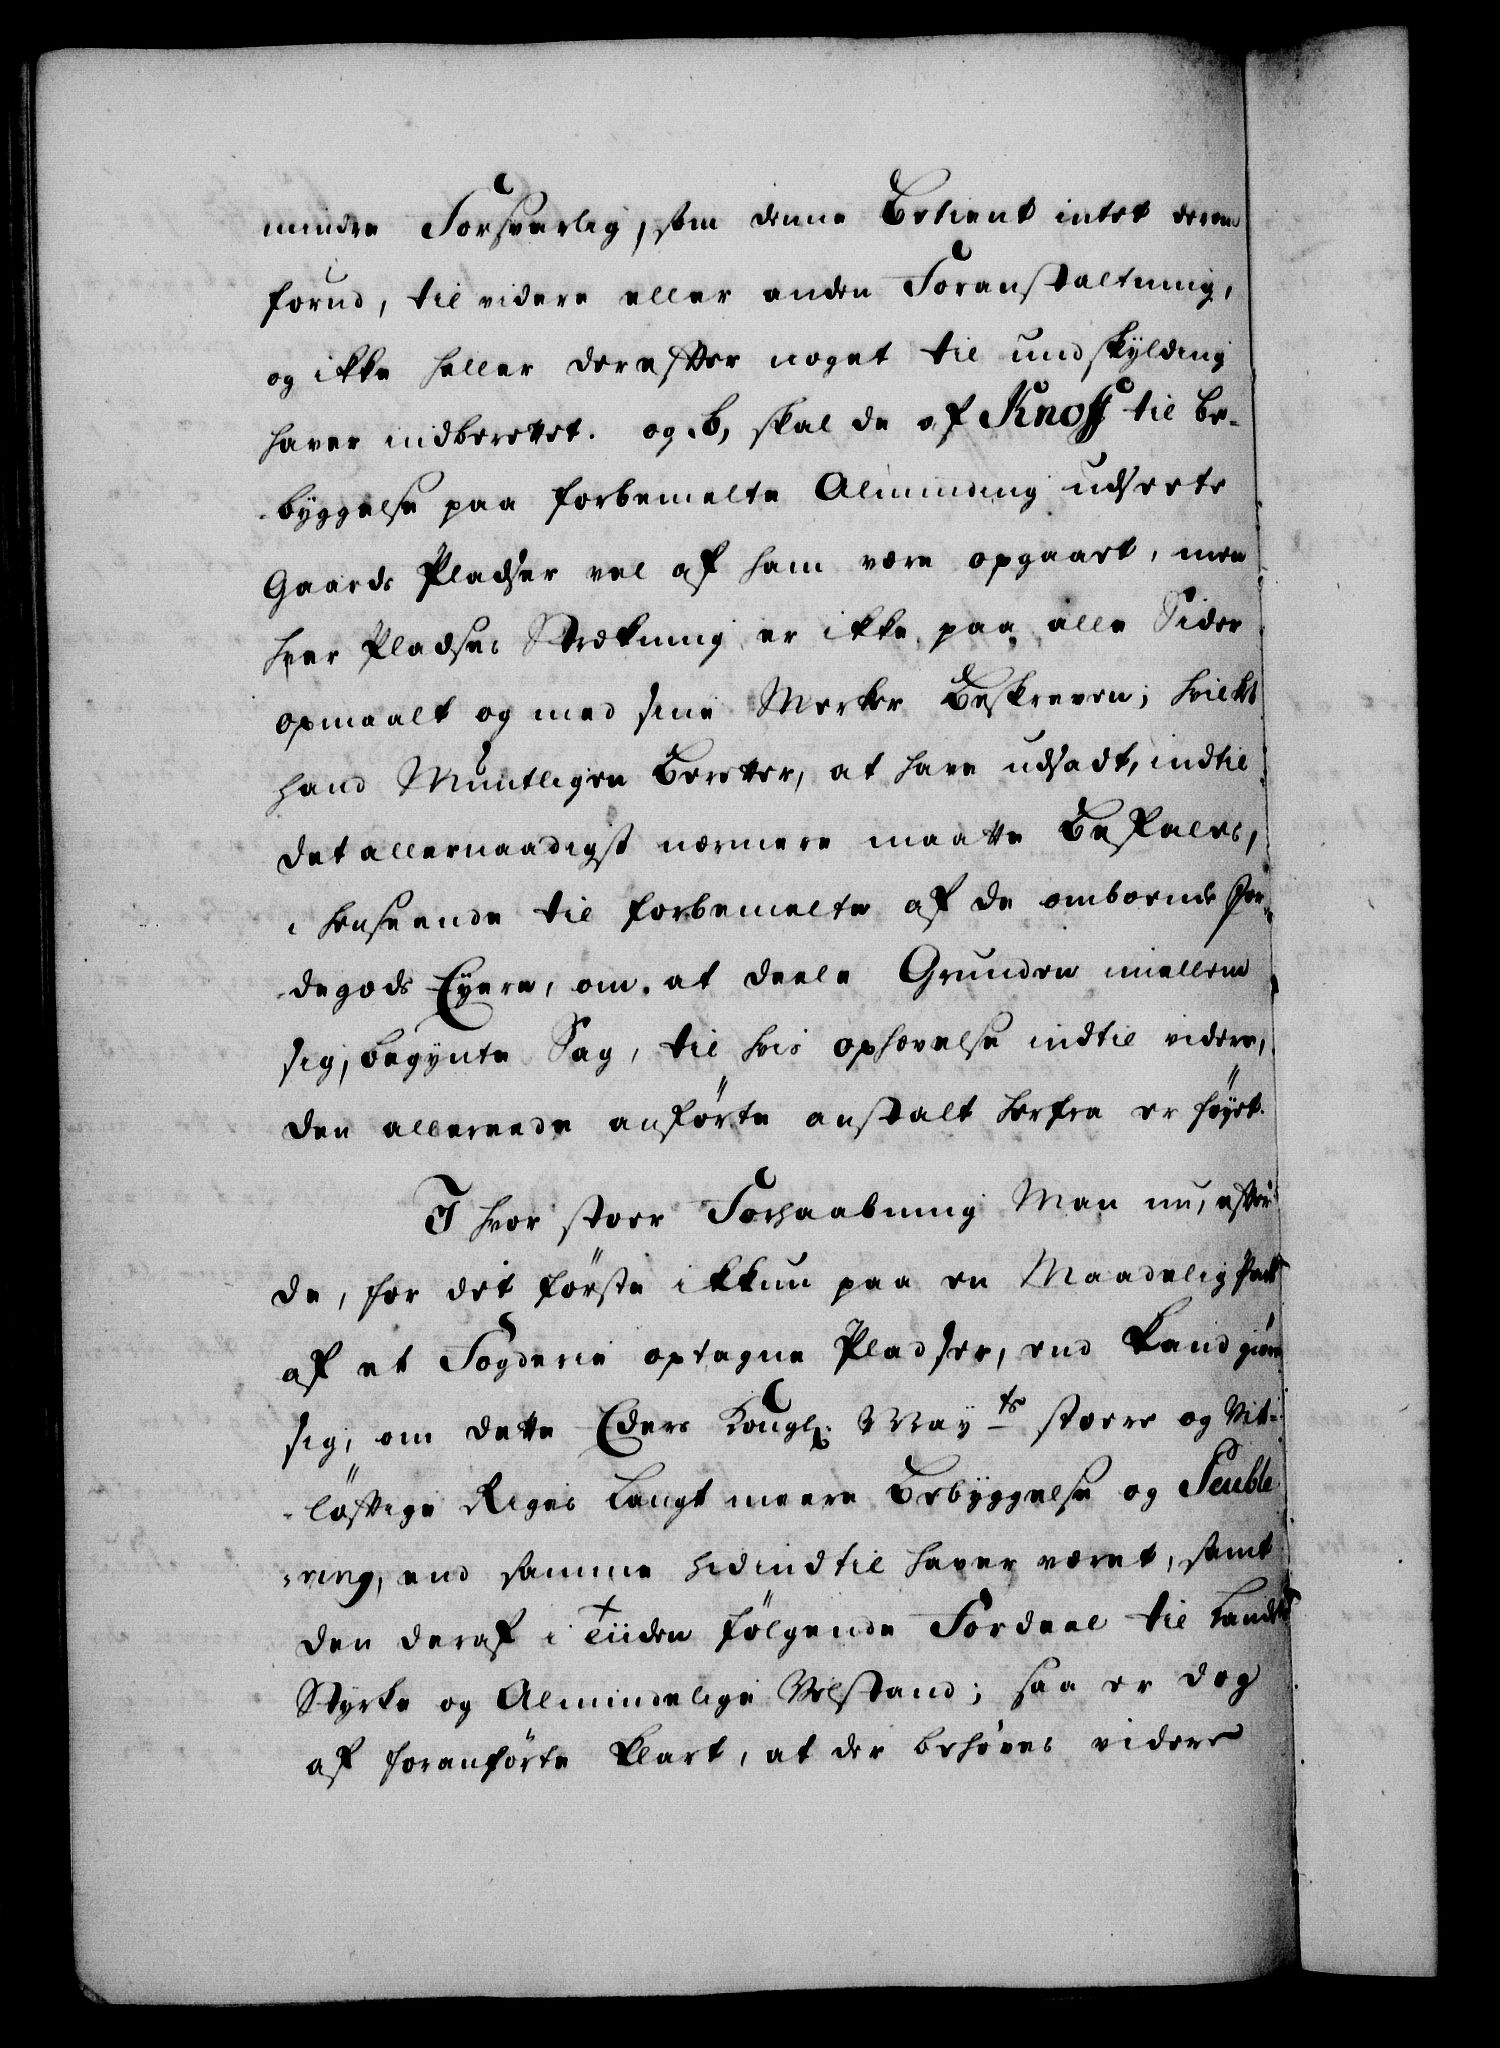 mindre Forsvarlig, som denne Betient intet derom
forud, til videre eller anden Foranstaltning,
og ikke heller derefter noget til undskylding
haver indberettet. og b, skal de af Knoff til be-
-byggelse paa forbemelte Alminding udseete
Gaards Pladser vel af ham være opgaaet, men
hver Pladses Strekning er ikke paa alle Sider
opmaalt og med sine Merker Beskreven; hvilket
hand Muntligen Beretter, at have udsadt, indtil
det allernaadigst nærmere maatte Befales,
i henseende til forbemelte af de omboende Jor-
-degods Eyere, om at deele Grunden imellem
sig, begynte Sag, til hvis ophævelse indtil videre,
den allereede anførte anstalt herfra er føyet.
I hvor stoer Forhaabning Man nu, efter
de, for det første ikkun paa en Maadelig Part
af et Fogderie optagne Pladser, end kand giøre
sig, om dette Eders Kongl: May ts stoere og Vit-
-løftige Riges langt meere Bebyggelse og Peuble
-ring, end samme hidindtil haver været, samt
den deraf i Tiiden følgende Fordeel til Landets
Styrke og Almindelige Velstand; saa er dog
af foranførte klart, at der behøves videre